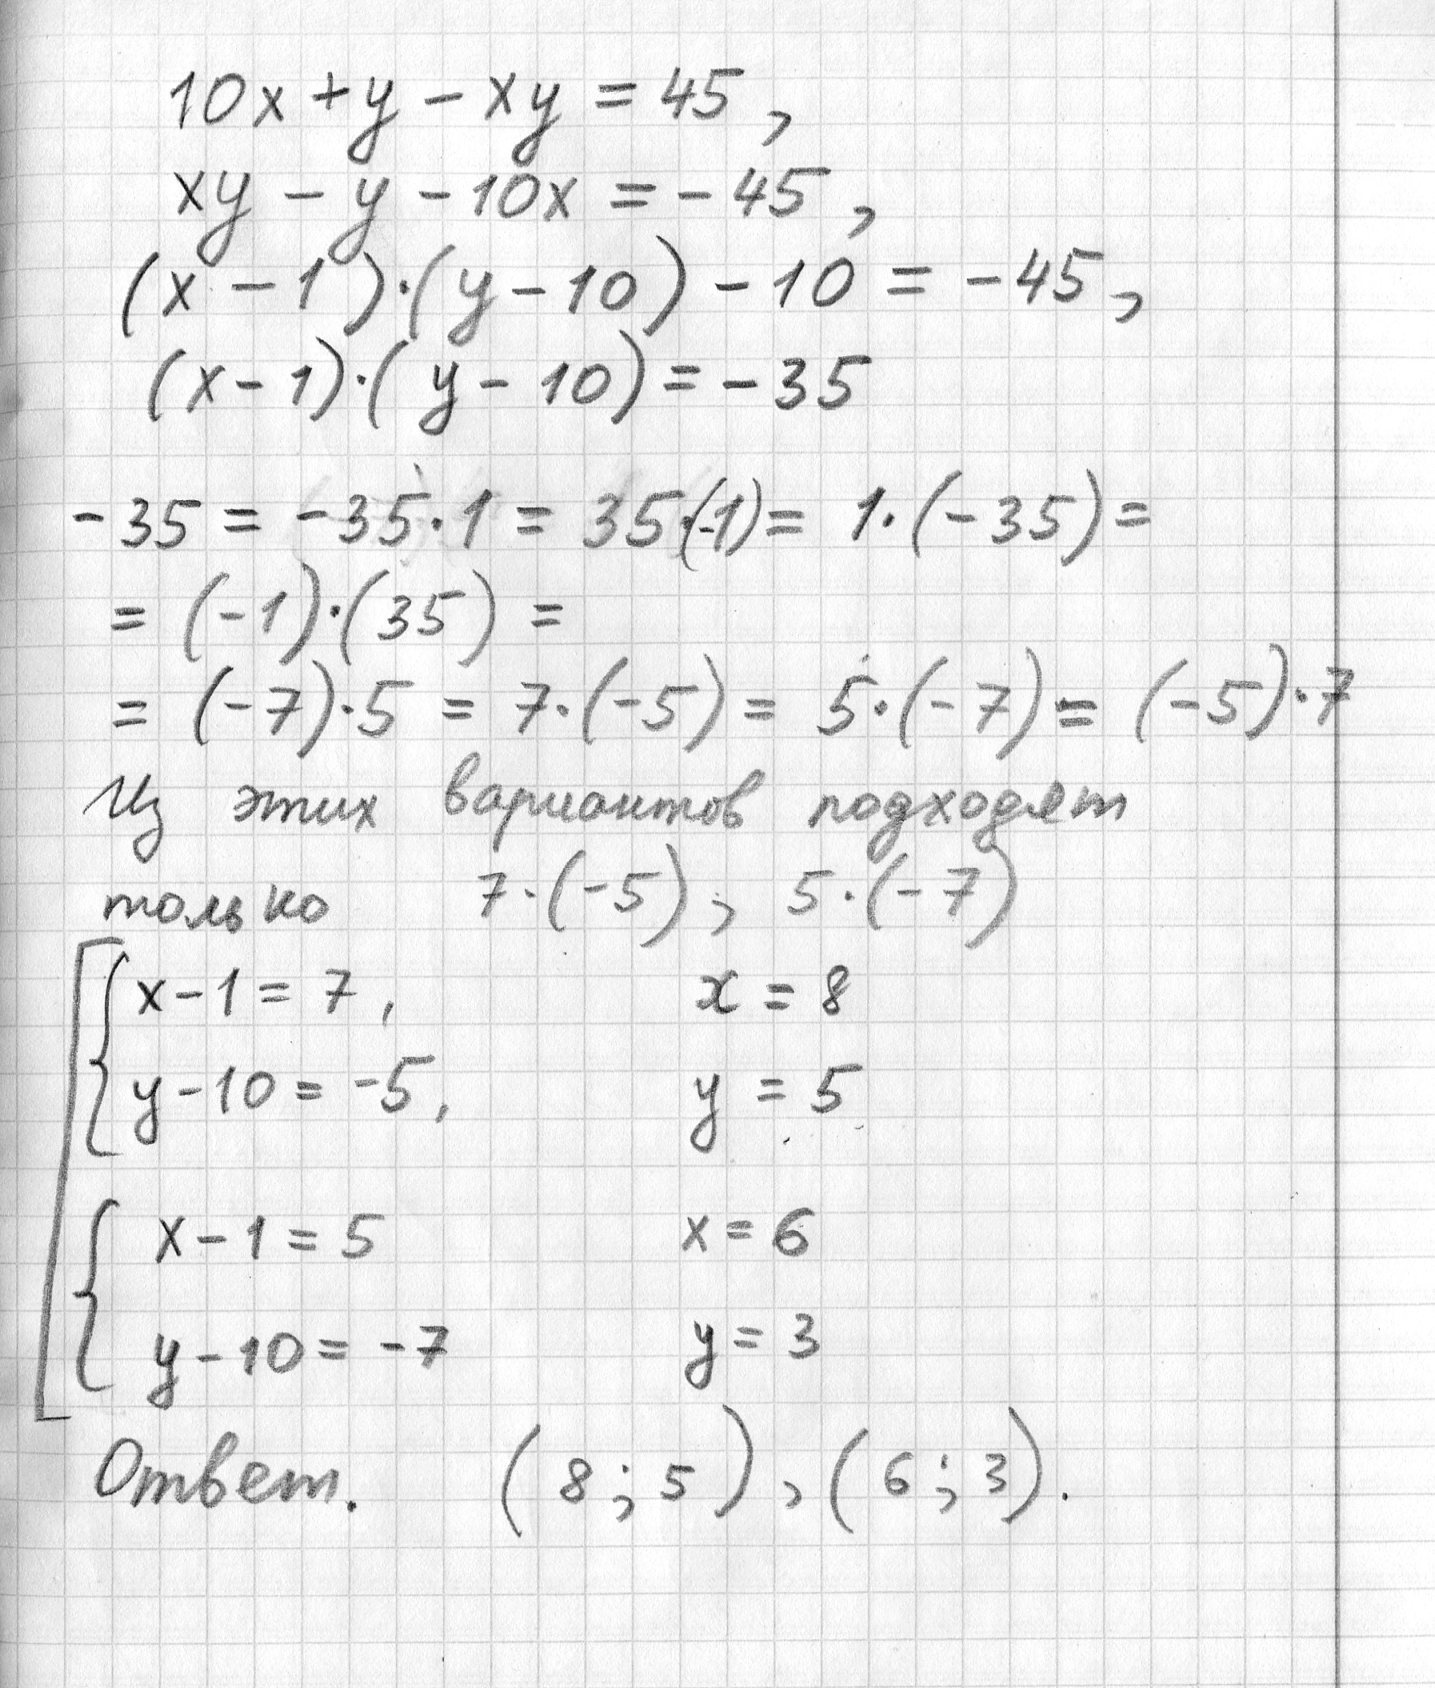 10x + y - xy = 45,
xy - y - 10x = -45,
(x - 1)·(y - 10) - 10 = -45,
(x - 1)·(y - 10) = -35
-35 = -35·1 = 35·(-1) = 1·(-35) =
= (-1)·(35) =
= (-7)·5 = 7·(-5) = 5·(-7) = (-5)·7
Из этих вариантов подходят
только 7·(-5), 5·(-7)
x - 1 = 7, x = 8
y - 10 = -5, y = 5
x - 1 = 5 x = 6
y - 10 = -7 y = 3
Ответ. (8; 5), (6; 3).